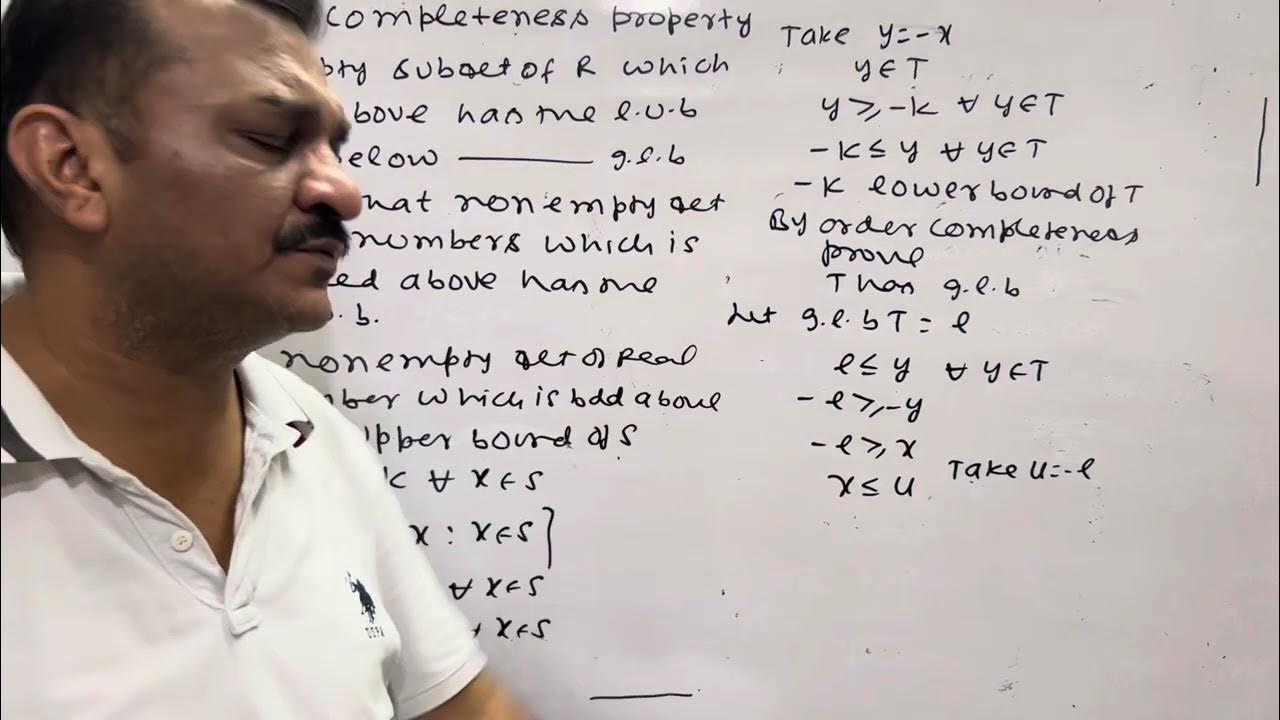 completeness property
pty subset of R which
bove has the l.u.b
elow ——— g.l.b
hat nonempty set
numbers which is
ed above has the
. b.
nonempty set of Real
ber which is bdd above
pper bound of S
k ∀ x∈S
x : x∈S }
∀ x∈S
x∈S
USPA
Take y=-x
y∈T
y≥-k ∀ y∈T
-k≤y ∀ y∈T
-k lower bound of T
By order completeness
prove
T has g.l.b
Let g.l.b T = l
l≤y ∀ y∈T
-l≥-y
-l≥x
x≤u Take u=-l